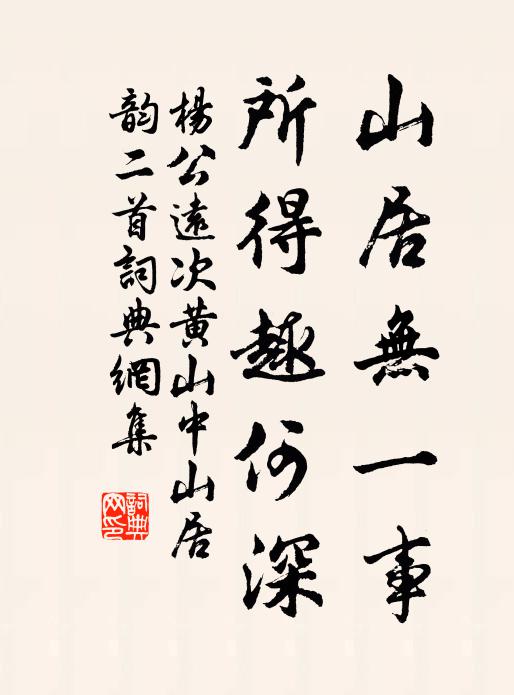 山居無一事
所得趣何深
楊公遠次黃山中山居
韵二首詞典網集
詞典網印